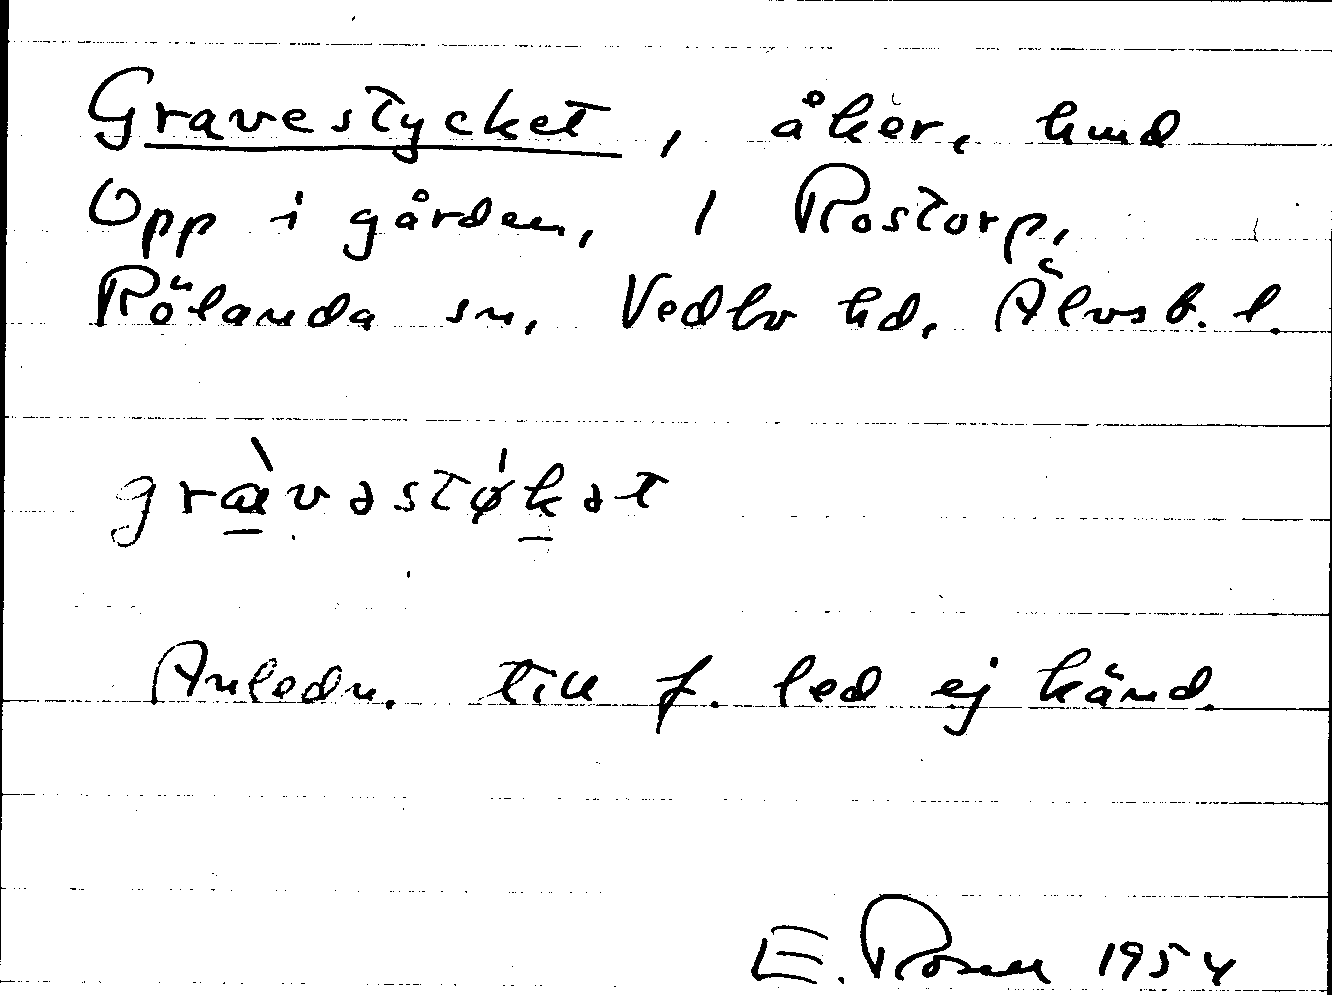 Gravestycket, åker, hmd
Opp i gården, 1 Rostorp,
Rölanda sn, Vedbo hd, Älvsb. l.
gràvəstǿkət
Anledn. till f. led ej känd.
E. Rosell 1954